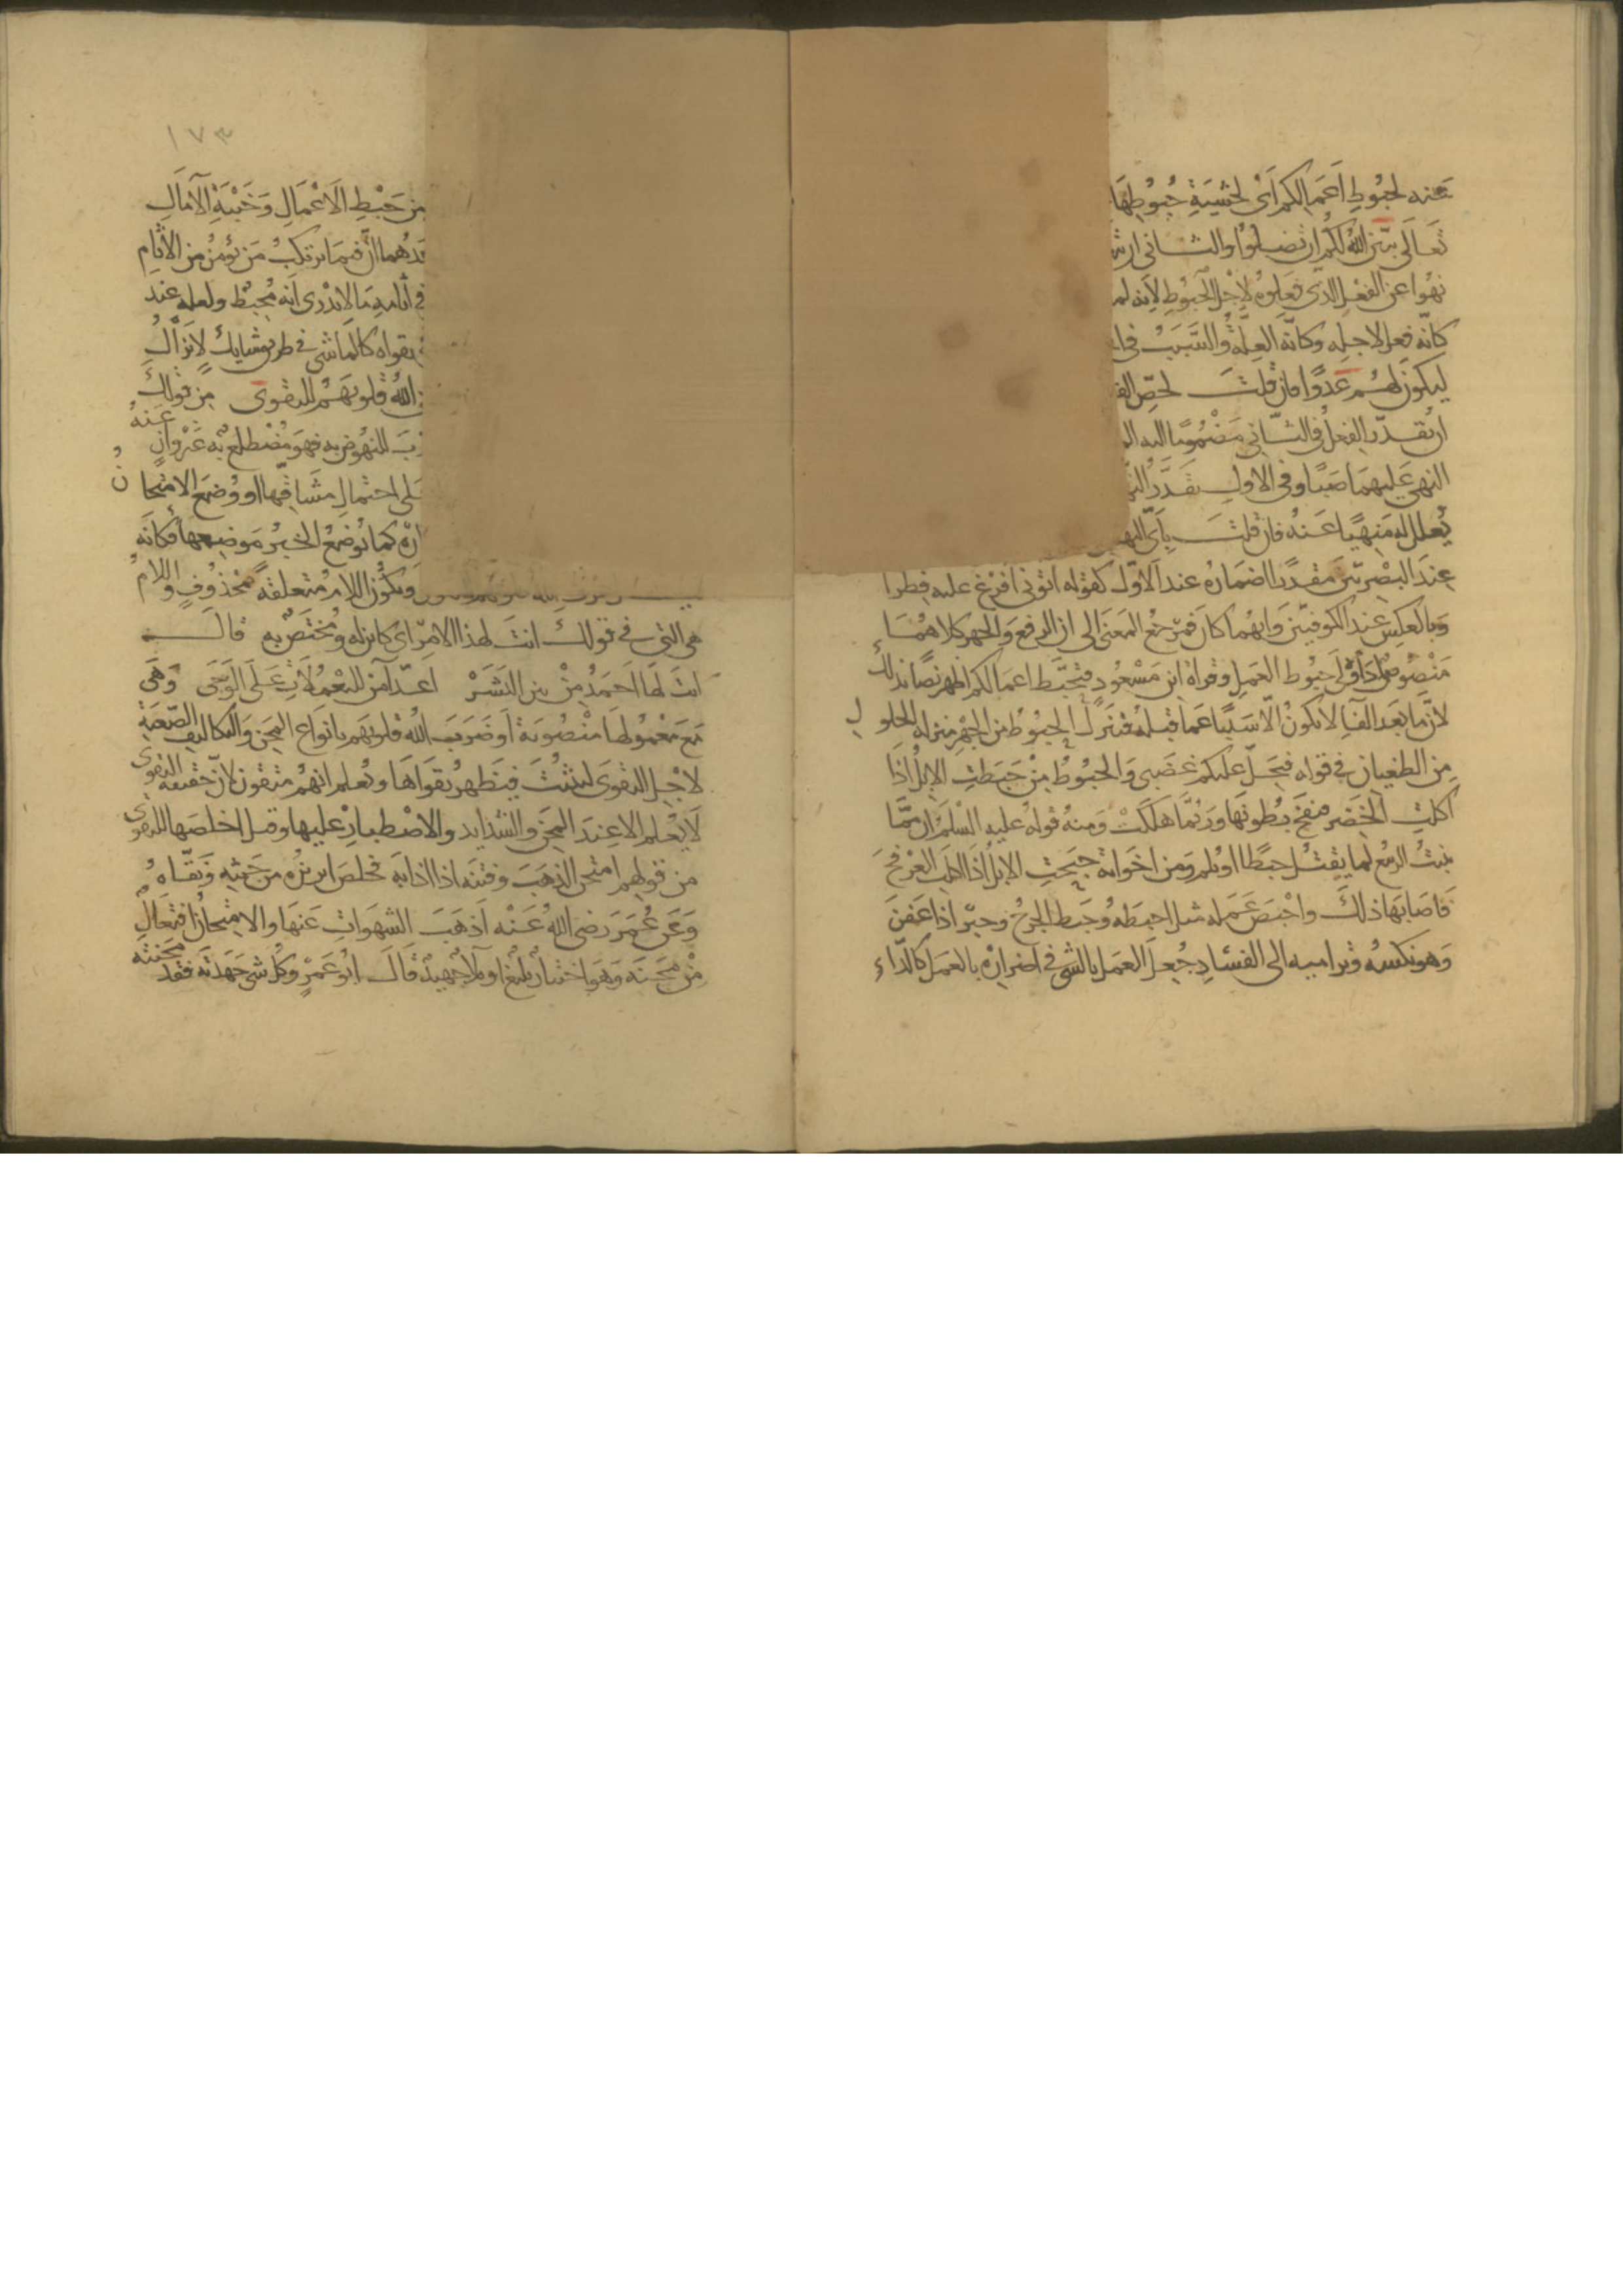 عنه لحبوطِ اعمالكم اى لخشيةِ حُبُوطِهَا
تعَالى يبيّن الله لكم ان تضلوا والثانى
نهُوا عن الفعْل الذى فعَلوه لاجْل الحُبُوطِ لانه لما
كانّه فعل لاجله وكانّه العِلّة والسّبَبُ فى
ليكون لهُم عَدوًّا فان قلتَ لحصّ
ان يقدّر الفعل فى الثّانى مَضْمُومًا اليه
النهى عَليهمَا صَبًّا وفى الاول يقدّر
يُعلل له مَنهيًّا عَنهُ فان قلتَ بأىّ
عندَ البصْريّين مقدّرًا اضمارُه عند الاوّل كقوله اتونى افرغ عليه قطرا
وبالعكس عند الكوفيّين وايهُما كان فمرْجعُ المعنى الى ان الرفع والجهر كلاهُما
مَنْصُوصٌ اداؤه الى حبُوط العمل وقراة ابن مَسْعُودٍ فتحبَط اعمالكم اظهر نصًّا بذلك
لانّ ما بَعد الفا لا يكونُ الّا سَببًا عمّا قبله فتنزل الحبُوط من الجهْر منزلة الحلول
من الطغيان فى قوله فيحلّ عليكم غضبى والحبُوطُ مِنْ حَبطتِ الابلُ اذا
اكلتِ الخضر فنفخ بُطونها وربّما هَلكَتْ ومنهُ قوله عليه السّلم ان ممّا
ينبتُ الربيعُ لما يقتُل حَبطًا او يلم ومن اخواته حبجتِ الابلُ اذا اكلت العرْفجَ
فاصَابها ذلك واحْبضَ عَمَله مثل احبطه وحبط الجرحُ وحبرَ اذا عَفنَ
وهو نكسُه وتراميه الى الفسَادِ جُعلَ العمل بالشئ فى اضراره بالعمل كالدّاء
١٧٣
من حَبْطِ الاعْمالِ وخَيْبَةِ الآمَالِ
هما انّ فيمَا يرتكبُ مَن يؤمنُ من الآثام
فى آثامه ما لا يدْرى انه مُحبط ولعله عند
تقواه كالماشى فى طريق شايك لا يزالُ
الله قلوبَهُم للتقوى من قولك
للنهوض به فهو مُضْطلع به غير وانٍ عنهُ
على احتمالِ مشاقّها او وُضعَ الامتحانُ
كما يُوضعُ الخبرُ مَوضِعَها فكانّه
ويكون اللام متعلقة بمحذُوفٍ واللامُ
هى التى فى قولك انتَ لهذا الامر اى كاينٌ له ومُختصّ به قالَ
انتَ لهَا احمَدُ مِنْ بين البَشَرْ اعدّاٌ مَن لليَعْمُلَات عَلَى الوَجَى وهى
مع معْمُولها مَنْصُوبة او ضَرَبَ الله قلوبَهم بانواع المِحَن والتكاليف الصّعبةِ
لاجْل التقوى ليثبتَ فيظهرُ تقواها ويُعلم انهُم متقون لانّ حقيقة التقوى
لا يُعْلم الا عندَ المِحَن والشدايد والاصْطبارِ عليها وقيل اخلصها للتقوى
من قولهم امتحن الذهَبَ وفتنه اذا اذابَه فخلصَ ابريزُه من خبثه ونقّاهُ
وعَن عُمَرَ رضى اللهُ عَنْه اذهَبَ الشهواتِ عَنها والامتحانُ افتعَالٌ
مِنْ محَنَه وهو اختبارٌ بليغٌ او بلاءٌ جهيدٌ قالَ ابو عَمْرٍو كل شئ جَهَدتَه فقد محَنته